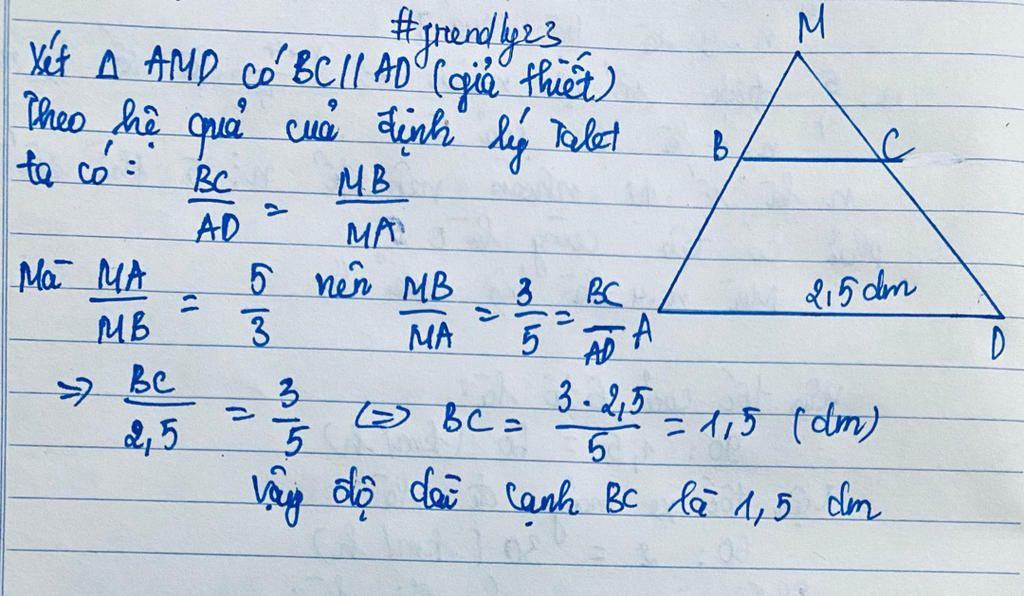 #friendly23
Xét Δ AMD có BC // AD (giả thiết)
Theo hệ quả của định lý Talet
ta có:
BC/AD = MB/MA
Mà MA/MB = 5/3 nên MB/MA = 3/5 = BC/AD
=> BC/2,5 = 3/5 <=> BC = 3 . 2,5/5 = 1,5 (dm)
Vậy độ dài cạnh BC là 1,5 dm
M
B
C
2,5 dm
A
D